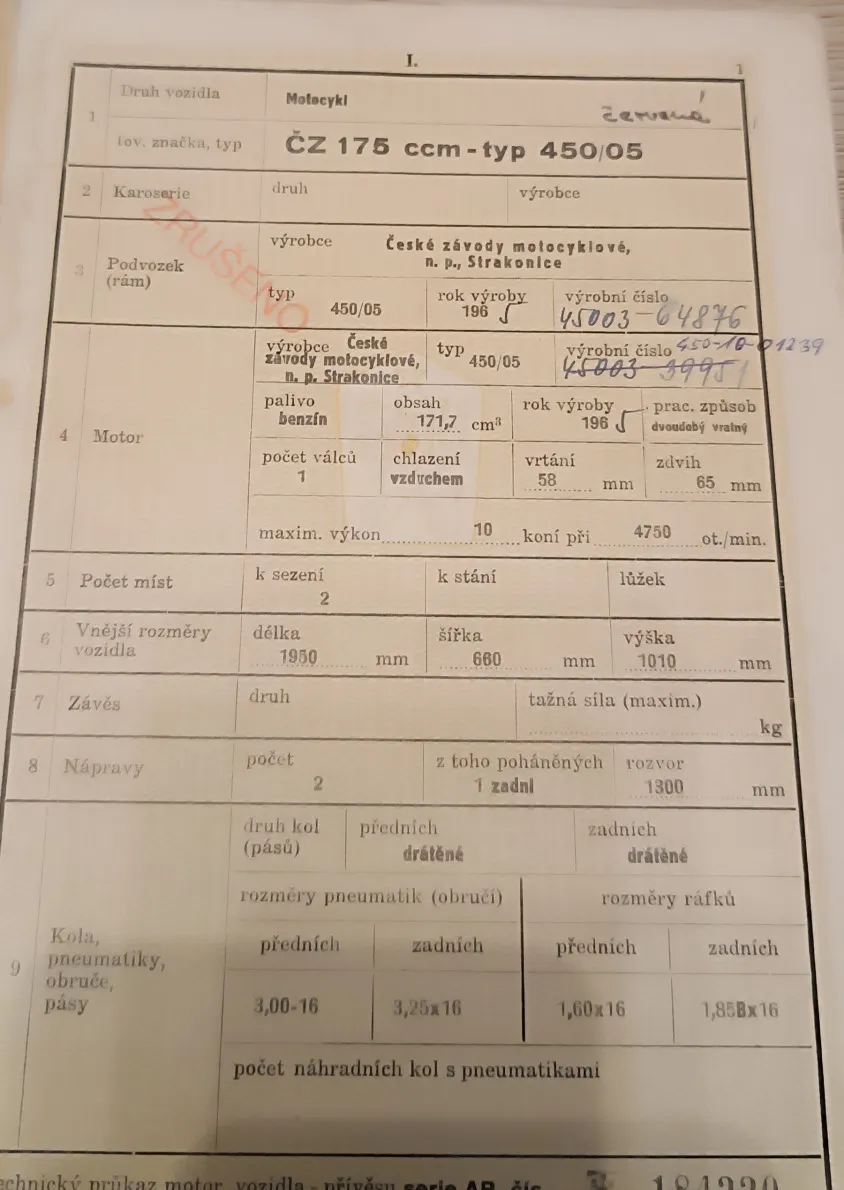 I.
1
1 Druh vozidla Motocykl červená
tov. značka, typ ČZ 175 ccm - typ 450/05
2 Karoserie druh výrobce
ZRUŠENO
3 Podvozek (rám) výrobce České závody motocyklové,
n. p., Strakonice
typ 450/05 rok výroby 1965 výrobní číslo 45003-64876
4 Motor výrobce České závody motocyklové, n. p. Strakonice typ 450/05 výrobní číslo 450-10-01239
45003-39951
palivo benzín obsah 171,7 cm³ rok výroby 1965 prac. způsob dvoudobý vratný
počet válců 1 chlazení vzduchem vrtání 58 mm zdvih 65 mm
maxim. výkon 10 koní při 4750 ot./min.
5 Počet míst k sezení 2 k stání lůžek
6 Vnější rozměry vozidla délka 1950 mm šířka 660 mm výška 1010 mm
7 Závěs druh tažná síla (maxim.) kg
8 Nápravy počet 2 z toho poháněných 1 zadní rozvor 1300 mm
9 Kola, pneumatiky, obruče, pásy druh kol (pásů) předních drátěné zadních drátěné
rozměry pneumatik (obručí) rozměry ráfků
předních zadních předních zadních
3,00-16 3,25x16 1,60x16 1,85Bx16
počet náhradních kol s pneumatikami
technický průkaz motor. vozidla - přívěsu serie AP, čís.